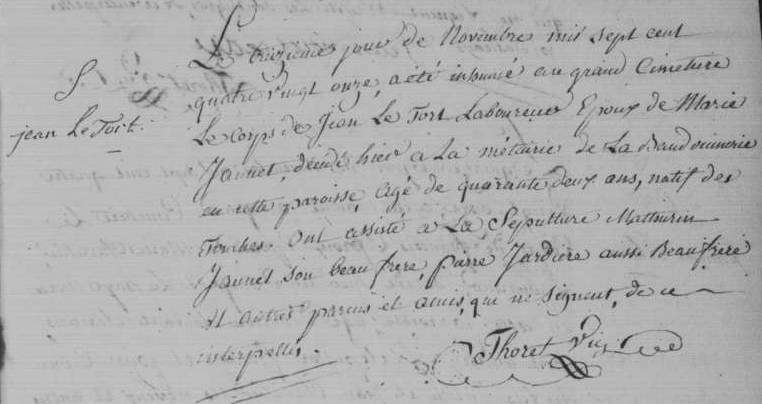 S
jean Le Tort.
Le treizieme jour de Novembre mil sept cent
quatre vingt onze, a été inhumé au grand Cimetiere
Le corps de Jean Le Tort Laboureur Epoux de Marie
Jannet, décédé hier a La métairie de La Baudouinnerie
en cette paroisse, agé de quarante deux ans, natif des
Touches. Ont assisté a La Sepulture Mathurin
Jannet son beau frere, Pierre Jardiere aussi Beaufrere
et autres parens et amis, qui ne signent, de ce
interpellés.
Thoret Vic